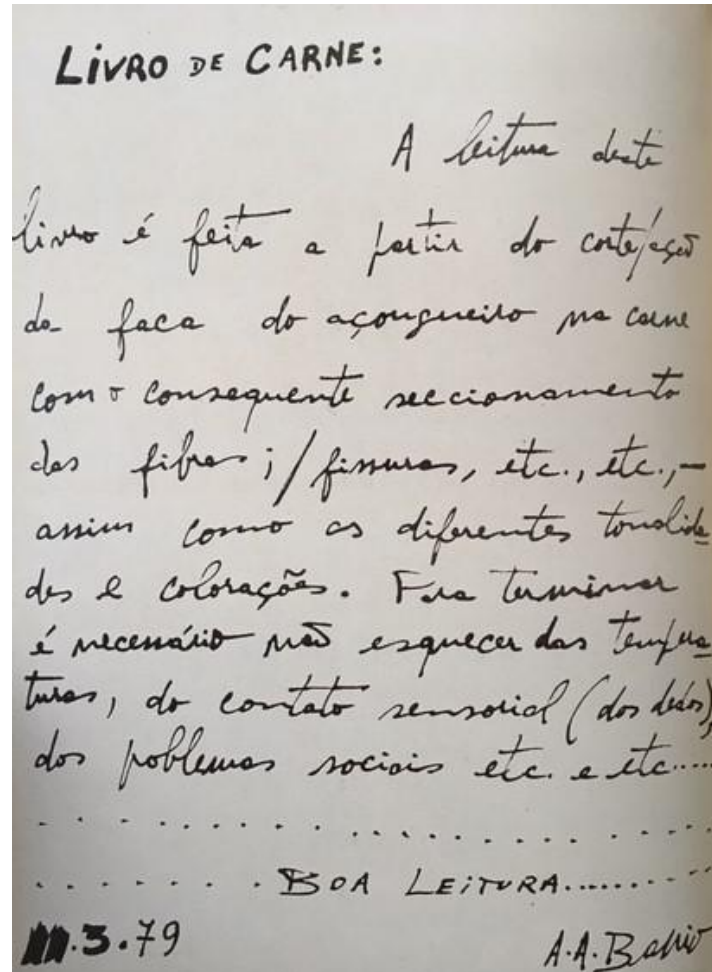 LIVRO DE CARNE:
A leitura deste
livro é feita a partir do corte/ação
da faca do açougueiro na carne
com o consequente seccionamento
das fibras; / fissuras, etc., etc., –
assim como as diferentes tonalida
des e colorações. Para terminar
é necessário não esquecer das tempera
turas, do contato sensorial (dos dedos),
dos problemas sociais etc. e etc.....
. . . . . . . . . . . . . . . . . . . .
. . . . . . . . BOA LEITURA..........
.3.79
A.A.Barrio